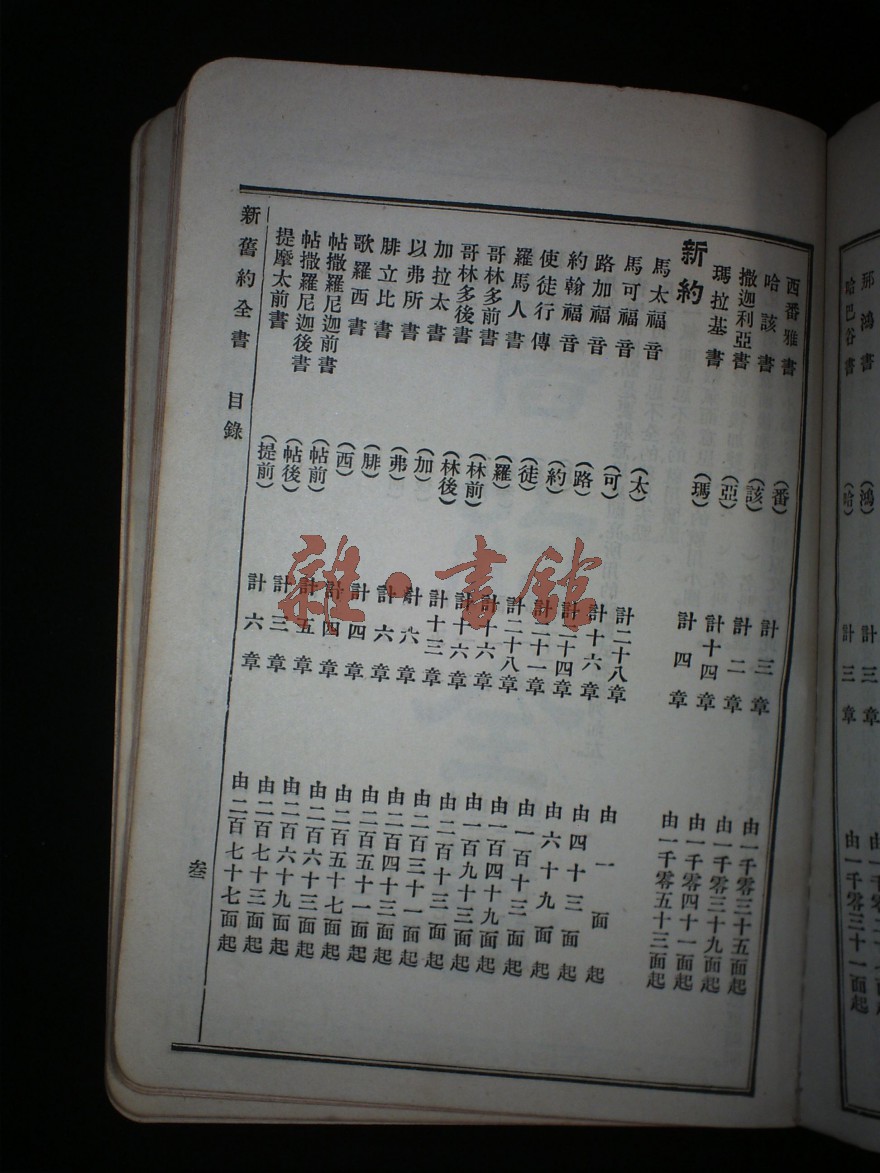 那鴻書 (鴻) 計三章
哈巴谷書 (哈) 計三章 由一千零三十一面起
西番雅書 (番) 計三章 由一千零三十五面起
哈該書 (該) 計二章 由一千零三十九面起
撒迦利亞書 (亞) 計十四章 由一千零四十一面起
瑪拉基書 (瑪) 計四章 由一千零五十三面起
新約
馬太福音 (太) 計二十八章 由一面起
馬可福音 (可) 計十六章 由四十三面起
路加福音 (路) 計二十四章 由六十九面起
約翰福音 (約) 計二十一章 由一百十三面起
使徒行傳 (徒) 計二十八章 由一百四十九面起
羅馬人書 (羅) 計十六章 由一百九十三面起
哥林多前書 (林前) 計十六章 由二百十三面起
哥林多後書 (林後) 計十三章 由二百三十一面起
加拉太書 (加) 計六章 由二百四十三面起
以弗所書 (弗) 計六章 由二百五十一面起
腓立比書 (腓) 計四章 由二百五十七面起
歌羅西書 (西) 計四章 由二百六十三面起
帖撒羅尼迦前書 (帖前) 計五章 由二百六十九面起
帖撒羅尼迦後書 (帖後) 計三章 由二百七十三面起
提摩太前書 (提前) 計六章 由二百七十七面起
新舊約全書 目錄 叁
雜·書館